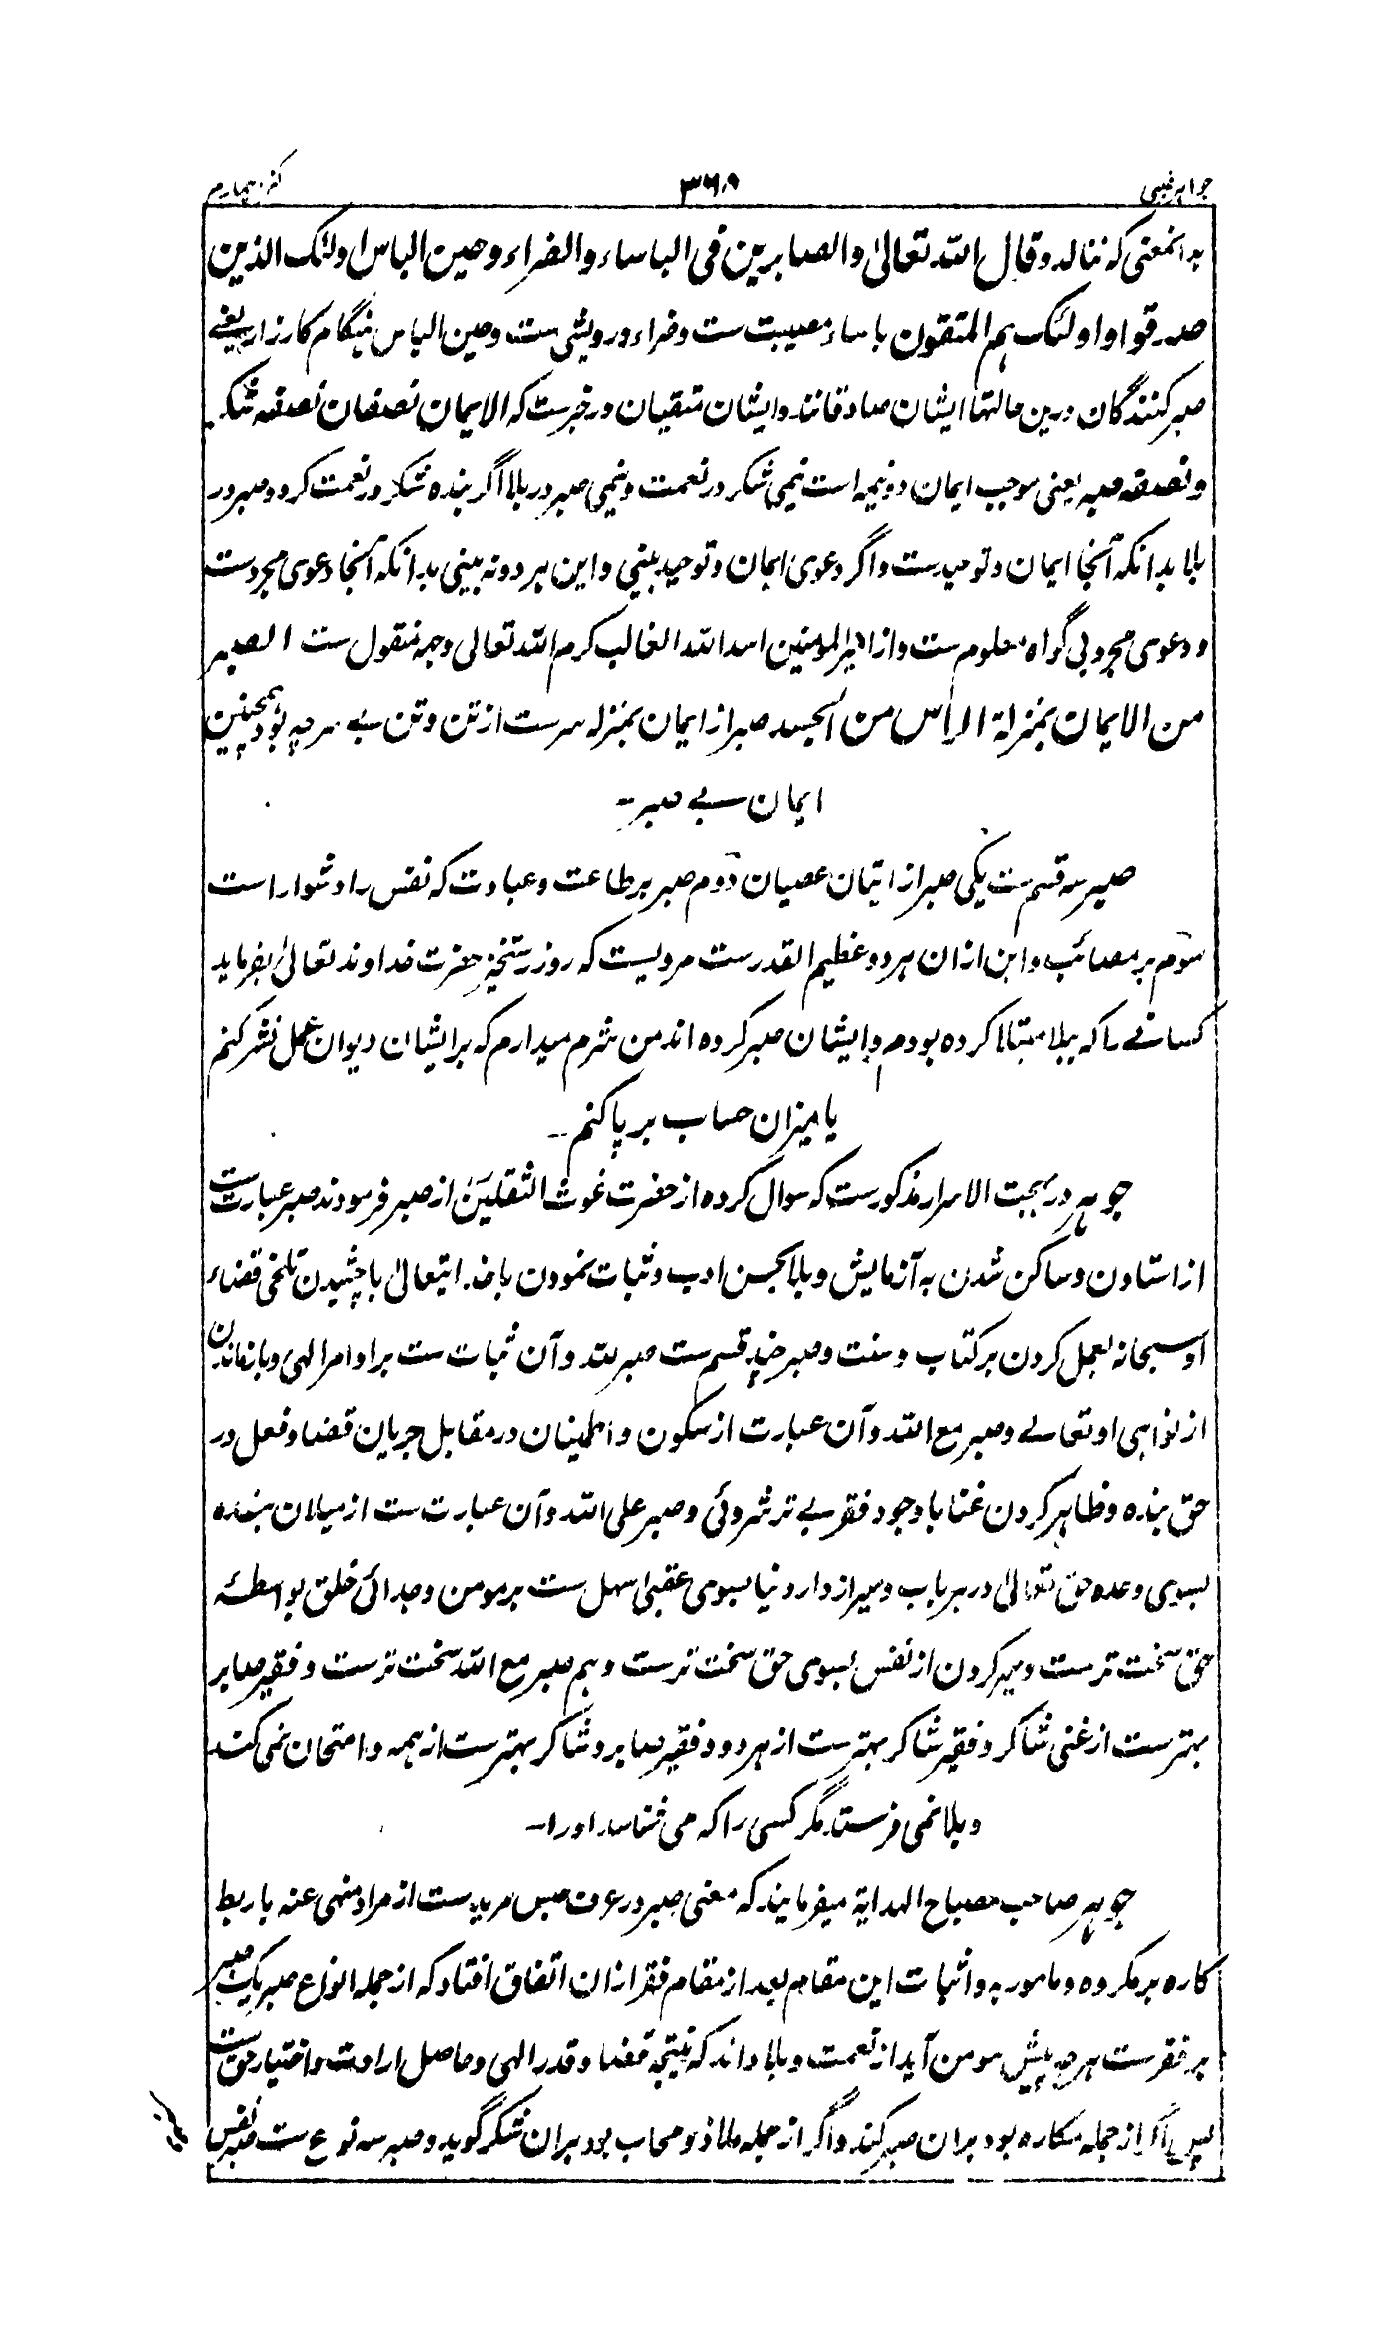 جواہر غیبی ۳۶۸ کنز چہارم
بدانمعنی که ننالد وقال الله تعالیٰ والصابرین فی الباساء والضراء وحین الباس اولئک الذین
صدقوا و اولئک ہم المتقون باساء مصیبت ست وضراء درویشی ست وحین الباس ہنگام کارزار یعنے
صبر کنندگان درین حالتہا ایشان صادقانند وایشان متقیان در خبرست که الایمان نصفان نصفه شکر
ونصفه صبر یعنی موجب ایمان دو نیمه است نیمی شکر در نعمت و نیمی صبر در بلا اگر بنده شکر در نعمت کرد و صبر در
بلا بدانکه آنجا ایمان و توحیدست واگر دعوی ایمان و توحید بینی و این ہر دو نه بینی بدانکه آنجا دعوی مجردست
و دعوی مجرد بی گواه معلوم ست و از امیرالمومنین اسد الله الغالب کرم الله تعالی وجهه منقول ست الصبر
من الایمان بمنزلة الراس من الجسد صبر از ایمان بمنزله سرست از تن و تن بے سر چه بود ہمچنین
ایمان بے صبر۔
صبر سه قسم ست یکی صبر از اتیان عصیان دوم صبر بر طاعت و عبادت که نفس را دشوار است
سوم بر مصائب و این ازان ہر دو عظیم القدرست مرویست که روز رستخیز حضرت خداوند تعالیٰ بفرماید
کسانے را که ببلا مبتلا کرده بودم و ایشان صبر کرده اند من شرم میدارم که بر ایشان دیوان عمل نشر کنم
یا میزان حساب بر پا کنم۔
جوہر در بہجت الاسرار مذکورست که سوال کرده از حضرت غوث الثقلین از صبر فرمودند صبر عبارت ست
از استادن و ساکن شدن به آزمایش و بلا بحسن ادب و ثبات نمودن با خدایتعالیٰ با چشیدن تلخی قضاء
او سبحانه بعمل کردن بر کتاب و سنت و صبر چند قسم ست صبر لله و آن ثبات ست بر اوامر الہی و باز ماندن
از نواہی او تعالے و صبر مع الله و آن عبارت از سکون و اطمینان در مقابل جریان قضا و فعل در
حق بنده و ظاہر کردن غنا با وجود فقر بے ترشروئی و صبر علی الله و آن عبارت ست از میلان بنده
بسوی وعده حق تعالیٰ در ہر باب و سیر از دار دنیا بسوی عقبی سہل ست بر مومن و جدائی خلق بواسطهٔ
حق سخت ترست و سیر کردن از نفس بسوی حق سخت ترست و ہم صبر مع الله سخت ترست و فقیر صابر
بہترست از غنی شاکر و فقیر شاکر بہترست از ہر دو و فقیر صابر و شاکر بہترست از ہمه و امتحان نمی کند
و بلا نمی فرستد مگر کسی را که می شناسد اورا۔
جوہر صاحب مصباح الہدایة میفرمایند که معنی صبر در عرف حبس مریدست از مراد منہی عنه یا ربط
کاره بر مکروه و مامور به و اثبات این مقام بعد از مقام فقر ازان اتفاق افتاد که از جمله انواع صبر یک صبر
بر فقرست ہر چه پیش مومن آید از نعمت و بلا داند که نتیجه قضا و قدر الہی و حاصل ارادت و اختیار حق ست
پس اگر از جمله مکاره بود بران صبر کند و اگر از جمله ملاذ و محاب بود بران شکر گوید و صبر سه نوع ست صبر نفس